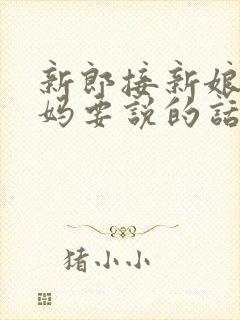 新郎接新娘
妈要说的话
猪小小